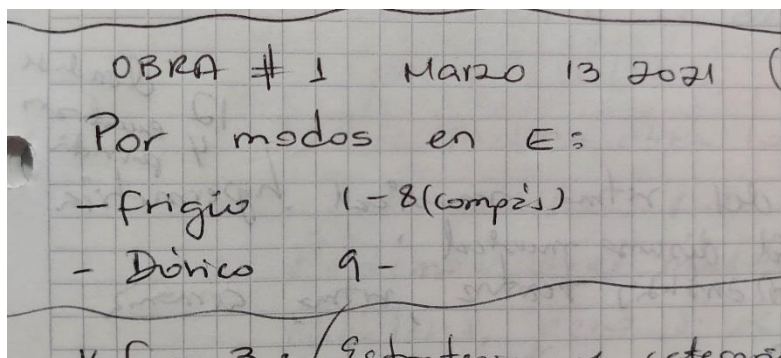 OBRA # 1 Marzo 13 2021 (
Por modos en E:
- frigio 1-8 (compás)
- Dórico 9 -